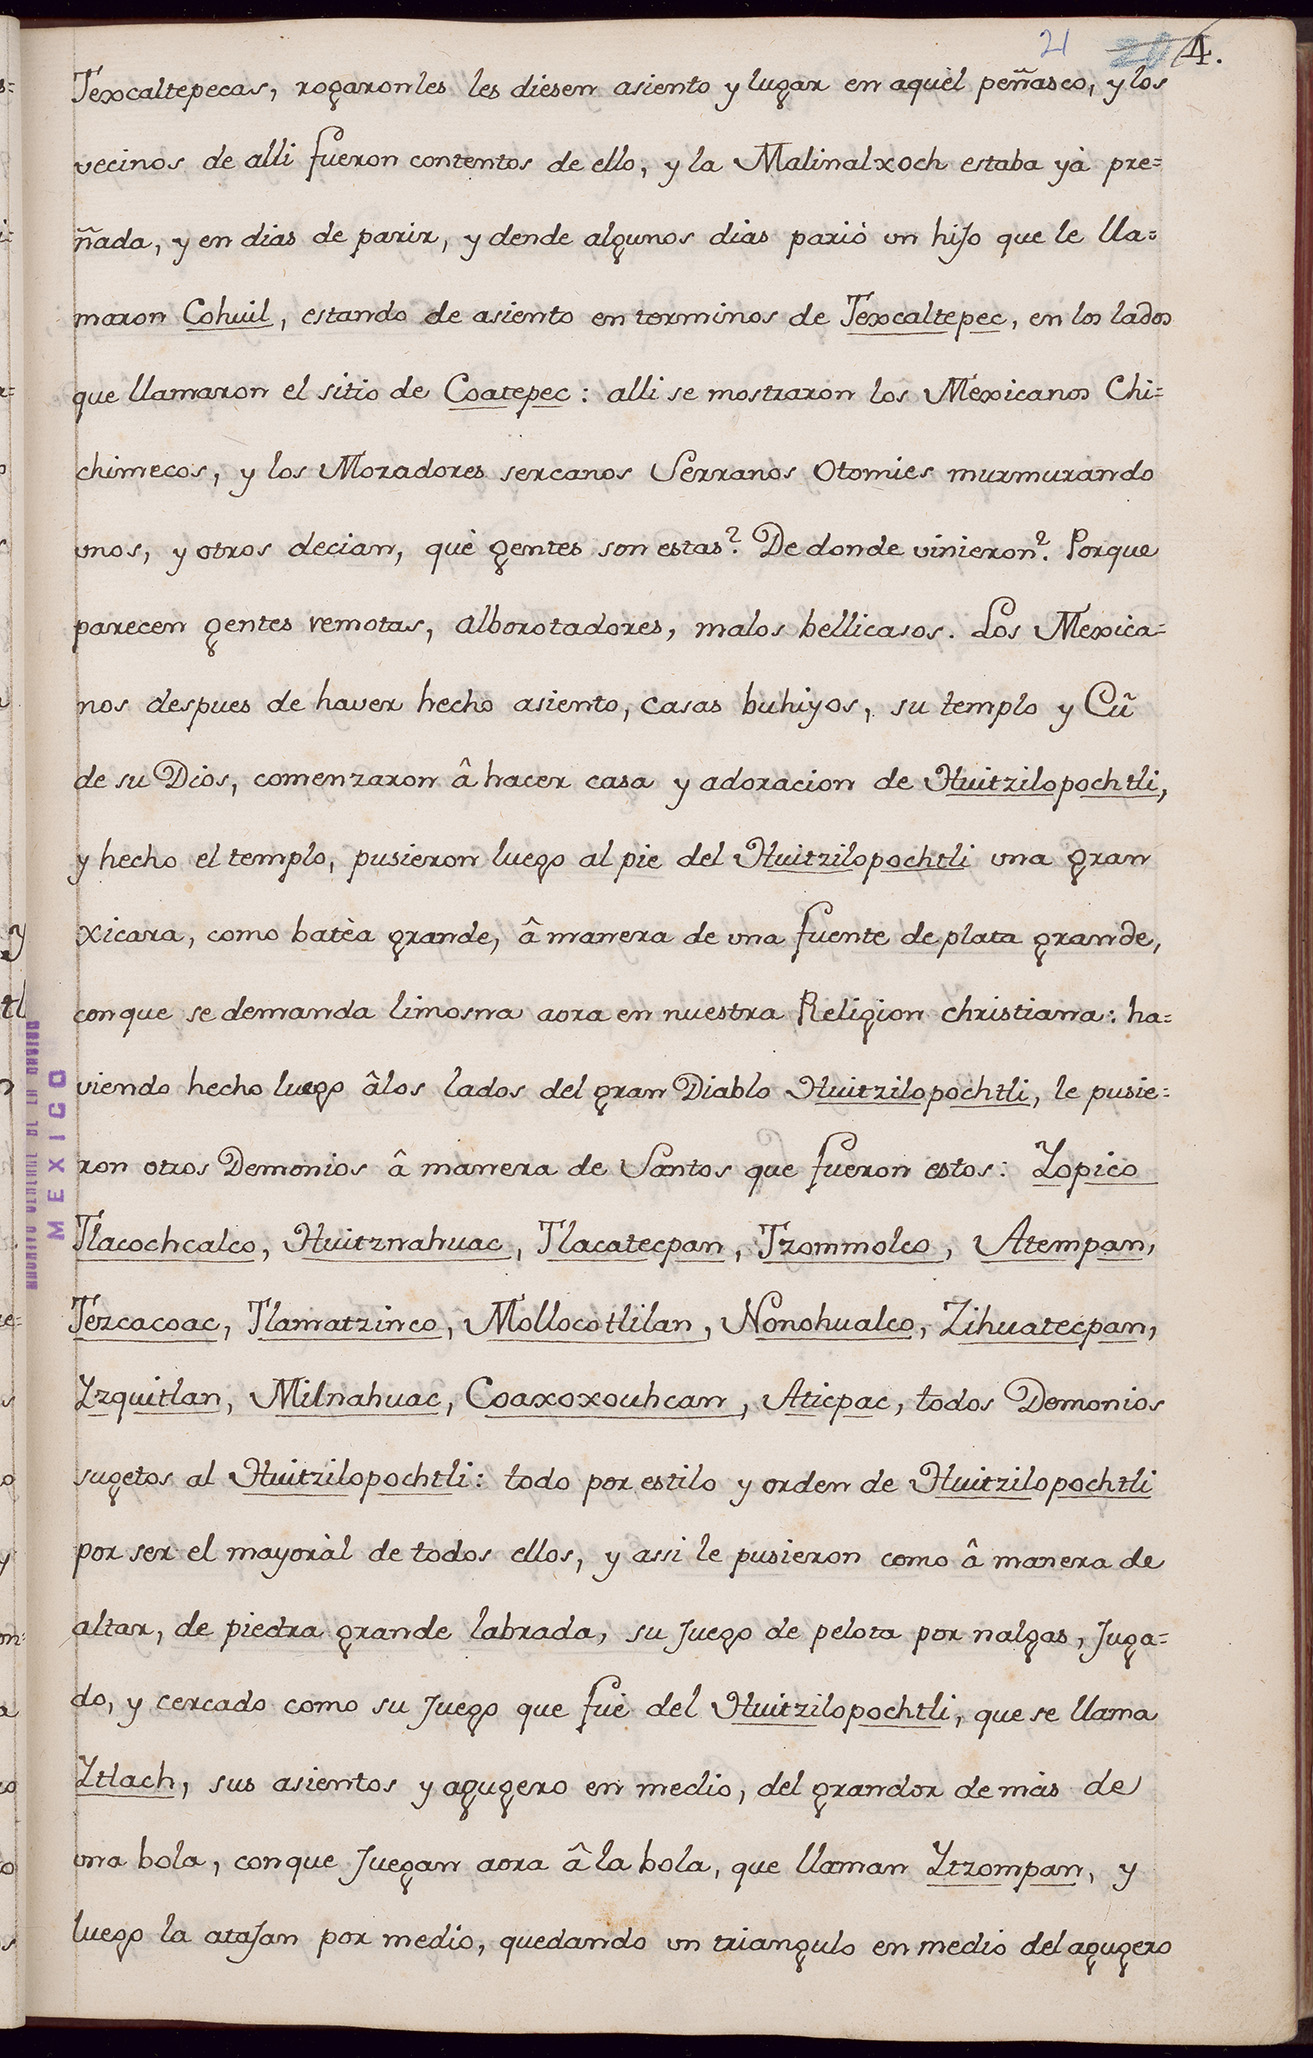 21 20 4.
Texcaltepecas, rogaronles les diesen asiento y lugar en aquèl peñasco, y los
vecinos de alli fueron contentos de ello, y la Malinalxoch estaba yà pre=
ñada, y en dias de parir, y dende algunos dias pariò un hijo que le lla=
maron Cohuil, estando de asiento en terminos de Texcaltepec, en los lados
que llamaron el sitio de Coatepec: alli se mostraron los Mexicanos Chi=
chimecos, y los Moradores sercanos Serranos Otomies murmurando
unos, y otros decian, què gentes son estas? De donde vinieron? Porque
parecen gentes remotas, alborotadores, malos bellicasos. Los Mexica=
nos despues de haver hecho asiento, casas buhiyos, su templo y Cũ
de su Dios, comenzaron â hacer casa y adoracion de Huitzilopochtli,
y hecho el templo, pusieron luego al pie del Huitzilopochtli una gran
xicara, como batèa grande, â manera de una fuente de plata grande,
con que se demanda limosna aora en nuestra Religion christiana: ha=
viendo hecho luego âlos lados del gran Diablo Huitzilopochtli, le pusie=
ron otros Demonios â manera de Santos que fueron estos: Yopico
Tlacochcalco, Huitznahuac, Tlacatecpan, Tzommolco, Atempan,
Tezcacoac, Tlamatzinco, Mollocotlilan, Nonohualco, Zihuatecpan,
Yzquitlan, Milnahuac, Coaxoxouhcan, Aticpac, todos Demonios
sugetos al Huitzilopochtli: todo por estilo y orden de Huitzilopochtli
por ser el mayoràl de todos ellos, y assi le pusieron como â manera de
altar, de piedra grande labrada, su juego de pelota por nalgas, juga=
do, y cercado como su juego que fuè del Huitzilopochtli, que se llama
Ytlach, sus asientos y agugero en medio, del grandor de màs de
una bola, con que juegan aora â la bola, que llaman Ytzompan, y
luego la atajan por medio, quedando un triangulo en medio del agugero
ARCHIVO GENERAL DE LA NACION
MEXICO